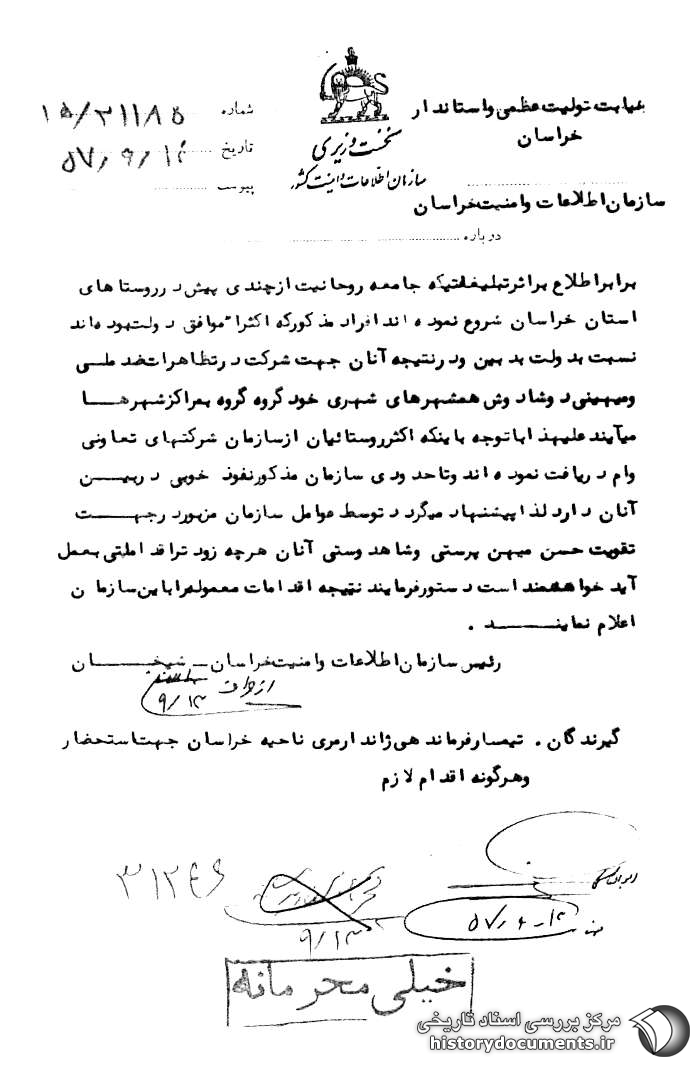 بنیابت تولیت عظمی واستاندار
خراسان
نخست وزیری
سازمان اطلاعات و امنیت کشور
شماره ۱۵/۳۱۱۸۵
تاریخ
پیوست
سازمان اطلاعات وامنیت خراسان
درباره
برابر اطلاع براثر تبلیغاتیکه جامعه روحانیت ازچندی پیش در روستاهای
استان خراسان شروع نموده اند افراد مذکورکه اکثرا" موافق دولت بوده اند
نسبت بدولت بدبین ودرنتیجه آنان جهت شرکت درتظاهرات ضد ملی
ومیهنی دوشادوش همشهرهای شهری خود گروه گروه بمراکزشهرها
میآیند علیهذا باتوجه باینکه اکثرروستائیان ازسازمان شرکتهای تعاونی
وام دریافت نموده اند وتاحدودی سازمان مذکورنفوذ خوبی دربین
آنان دارد لذا پیشنهاد میگردد توسط عوامل سازمان مزبور درجهت
تقویت حسن میهن پرستی وشاهدوستی آنان هرچه زودتراقداماتی بعمل
آید خواهشمند است دستورفرمایند نتیجه اقدامات معموله را باین سازمان
اعلام نمایند .
رئیس سازمان اطلاعات وامنیت خراسان ــ شیخان
۹/۱۳
گیرندگان . تیمسارفرماندهی ژاندارمری ناحیه خراسان جهت استحضار
وهرگونه اقدام لازم
۳۱۲۴۶
۹/۱۳
خیلی محرمانه
مرکز بررسی اسناد تاریخی
historydocuments.ir